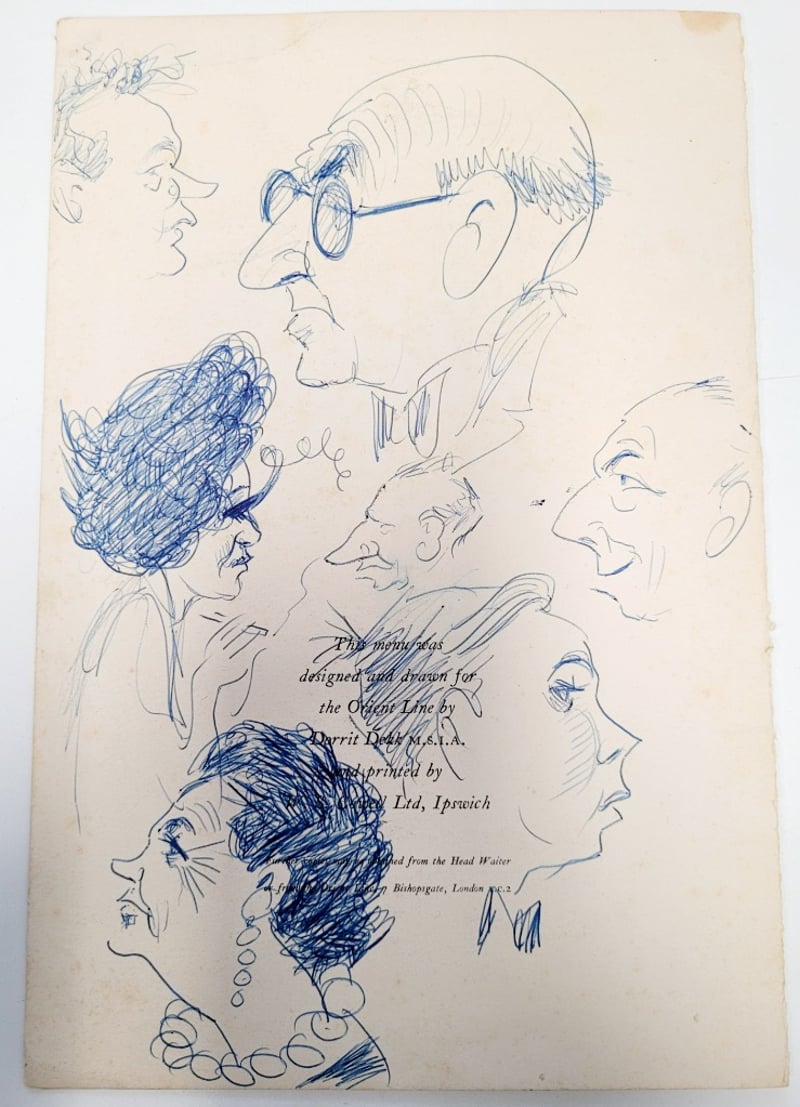 This menu was
designed and drawn for
the Orient Line by
Dorrit Dekk M.S.I.A.
and printed by
Cowell Ltd, Ipswich
Further copies may be obtained from the Head Waiter
or from the Orient Line, Bishopsgate, London E.C.2